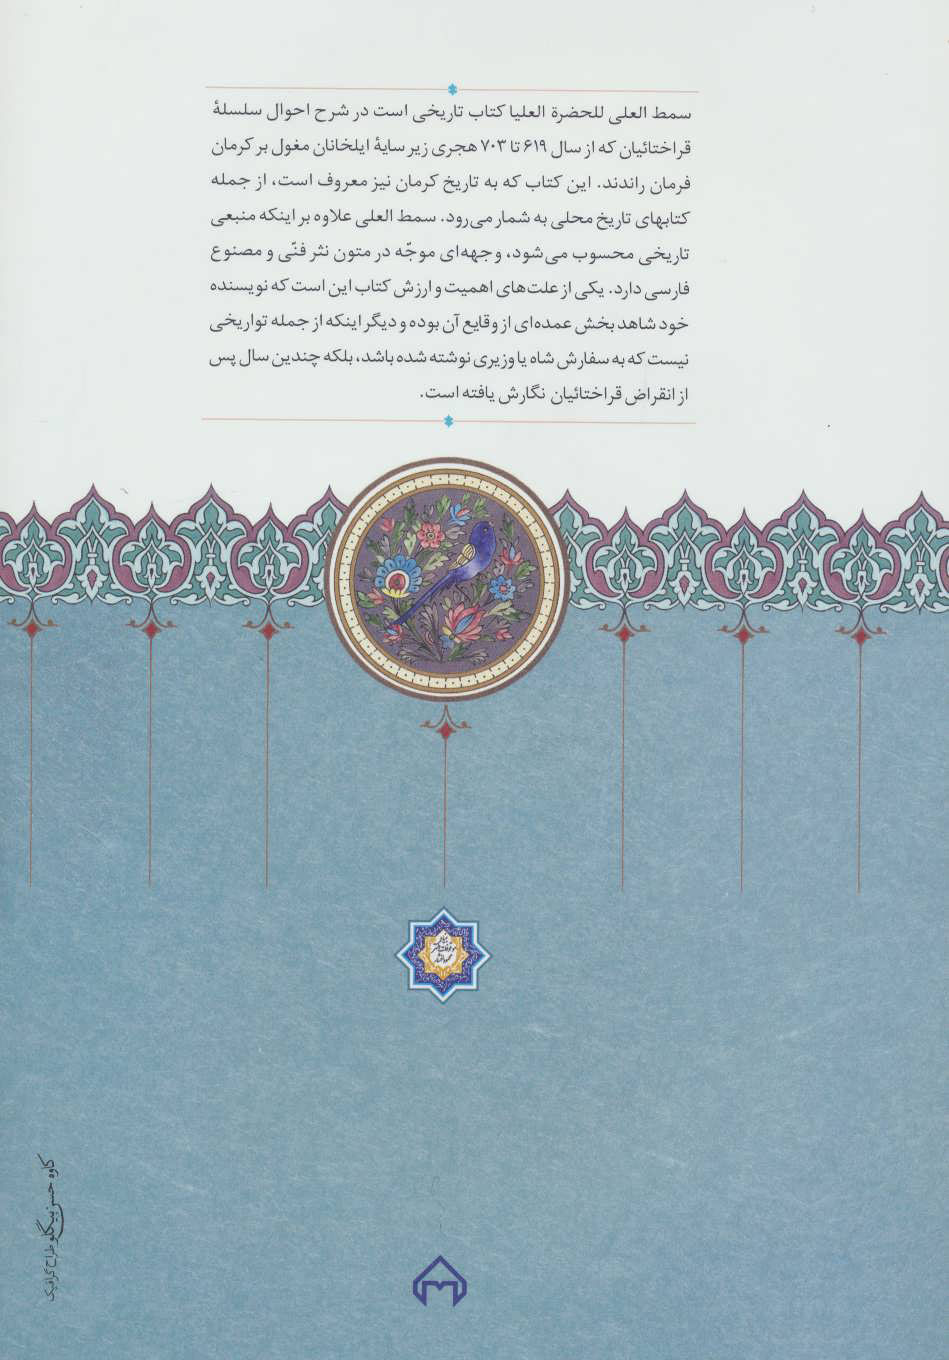 سمط العلی للحضرة العلیا کتاب تاریخی است در شرح احوال سلسلهٔ
قراختائیان که از سال ۶۱۹ تا ۷۰۳ هجری زیر سایهٔ ایلخانان مغول بر کرمان
فرمان راندند. این کتاب که به تاریخ کرمان نیز معروف است، از جمله
کتابهای تاریخ محلی به شمار می‌رود. سمط العلی علاوه بر اینکه منبعی
تاریخی محسوب می‌شود، وجهه‌ای موجّه در متون نثر فنّی و مصنوع
فارسی دارد. یکی از علت‌های اهمیت و ارزش کتاب این است که نویسنده
خود شاهد بخش عمده‌ای از وقایع آن بوده و دیگر اینکه از جمله تواریخی
نیست که به سفارش شاه یا وزیری نوشته شده باشد، بلکه چندین سال پس
از انقراض قراختائیان نگارش یافته است.
بنیاد
موقوفات دکتر
محمود افشار
کاوه حسن بیگلو طراح گرافیک